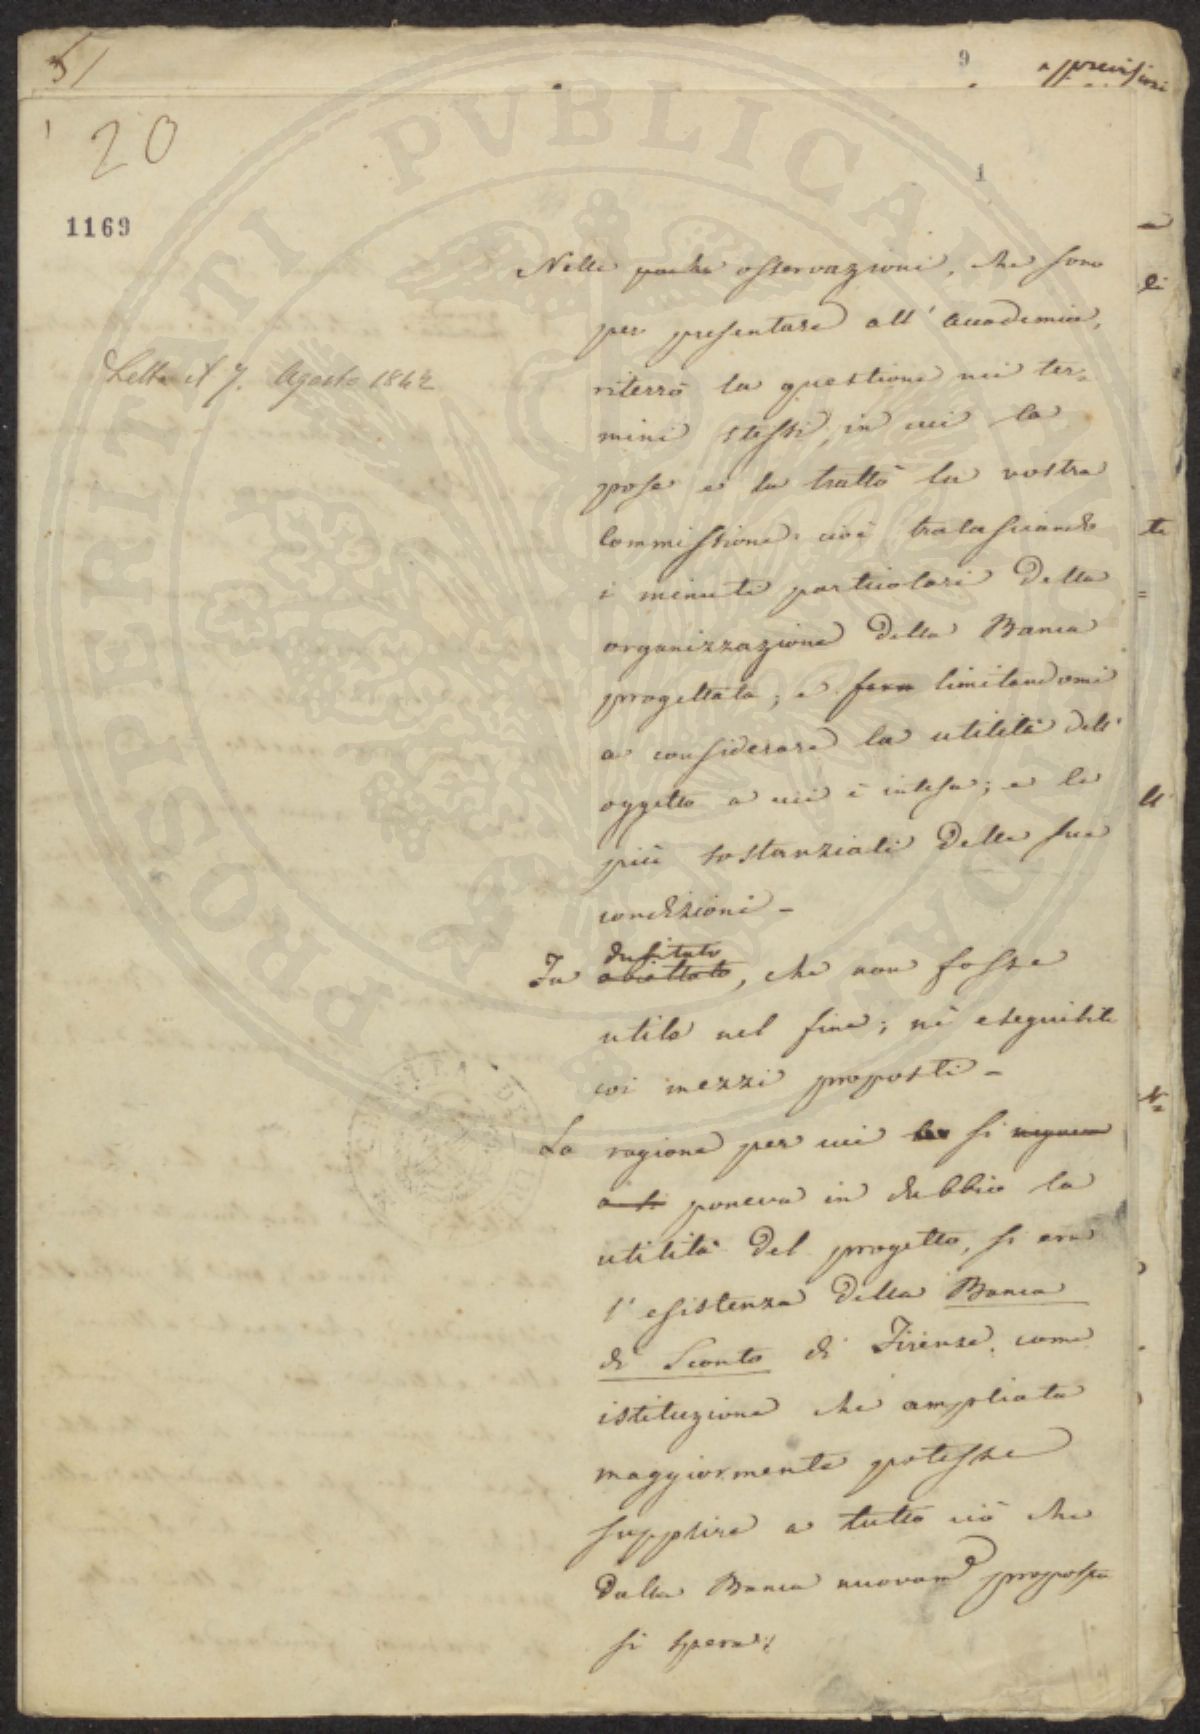 51
9
20
1
1169
Letta il 7. Agosto 1842
Nelle poche osservazioni, che sono
per presentare all' Accademia,
riterrò la questione nei ter=
mini stessi, in cui la
pose e la trattò la vostra
Commissione: cioè tralasciando
i minuti particolari della
organizzazione della Banca
progettata; e limitandomi
a considerare la utilità dell'
oggetto a cui è intesa; e le
più sostanziali delle sue
condizioni -
dubitato
Fu obiettato, che non fosse
utile nel fine; nè eseguibile
coi mezzi proposti -
La ragione per cui si
a si poneva in dubbio la
utilità del progetto, si era
l' esistenza della Banca
di Sconto di Firenze, come
istituzione che ampliata
maggiormente potesse
supplire a tutto ciò che
dalla Banca nuovam.e proposta
si spera:
PROSPERITATI PVBLICAE AVGENDAE